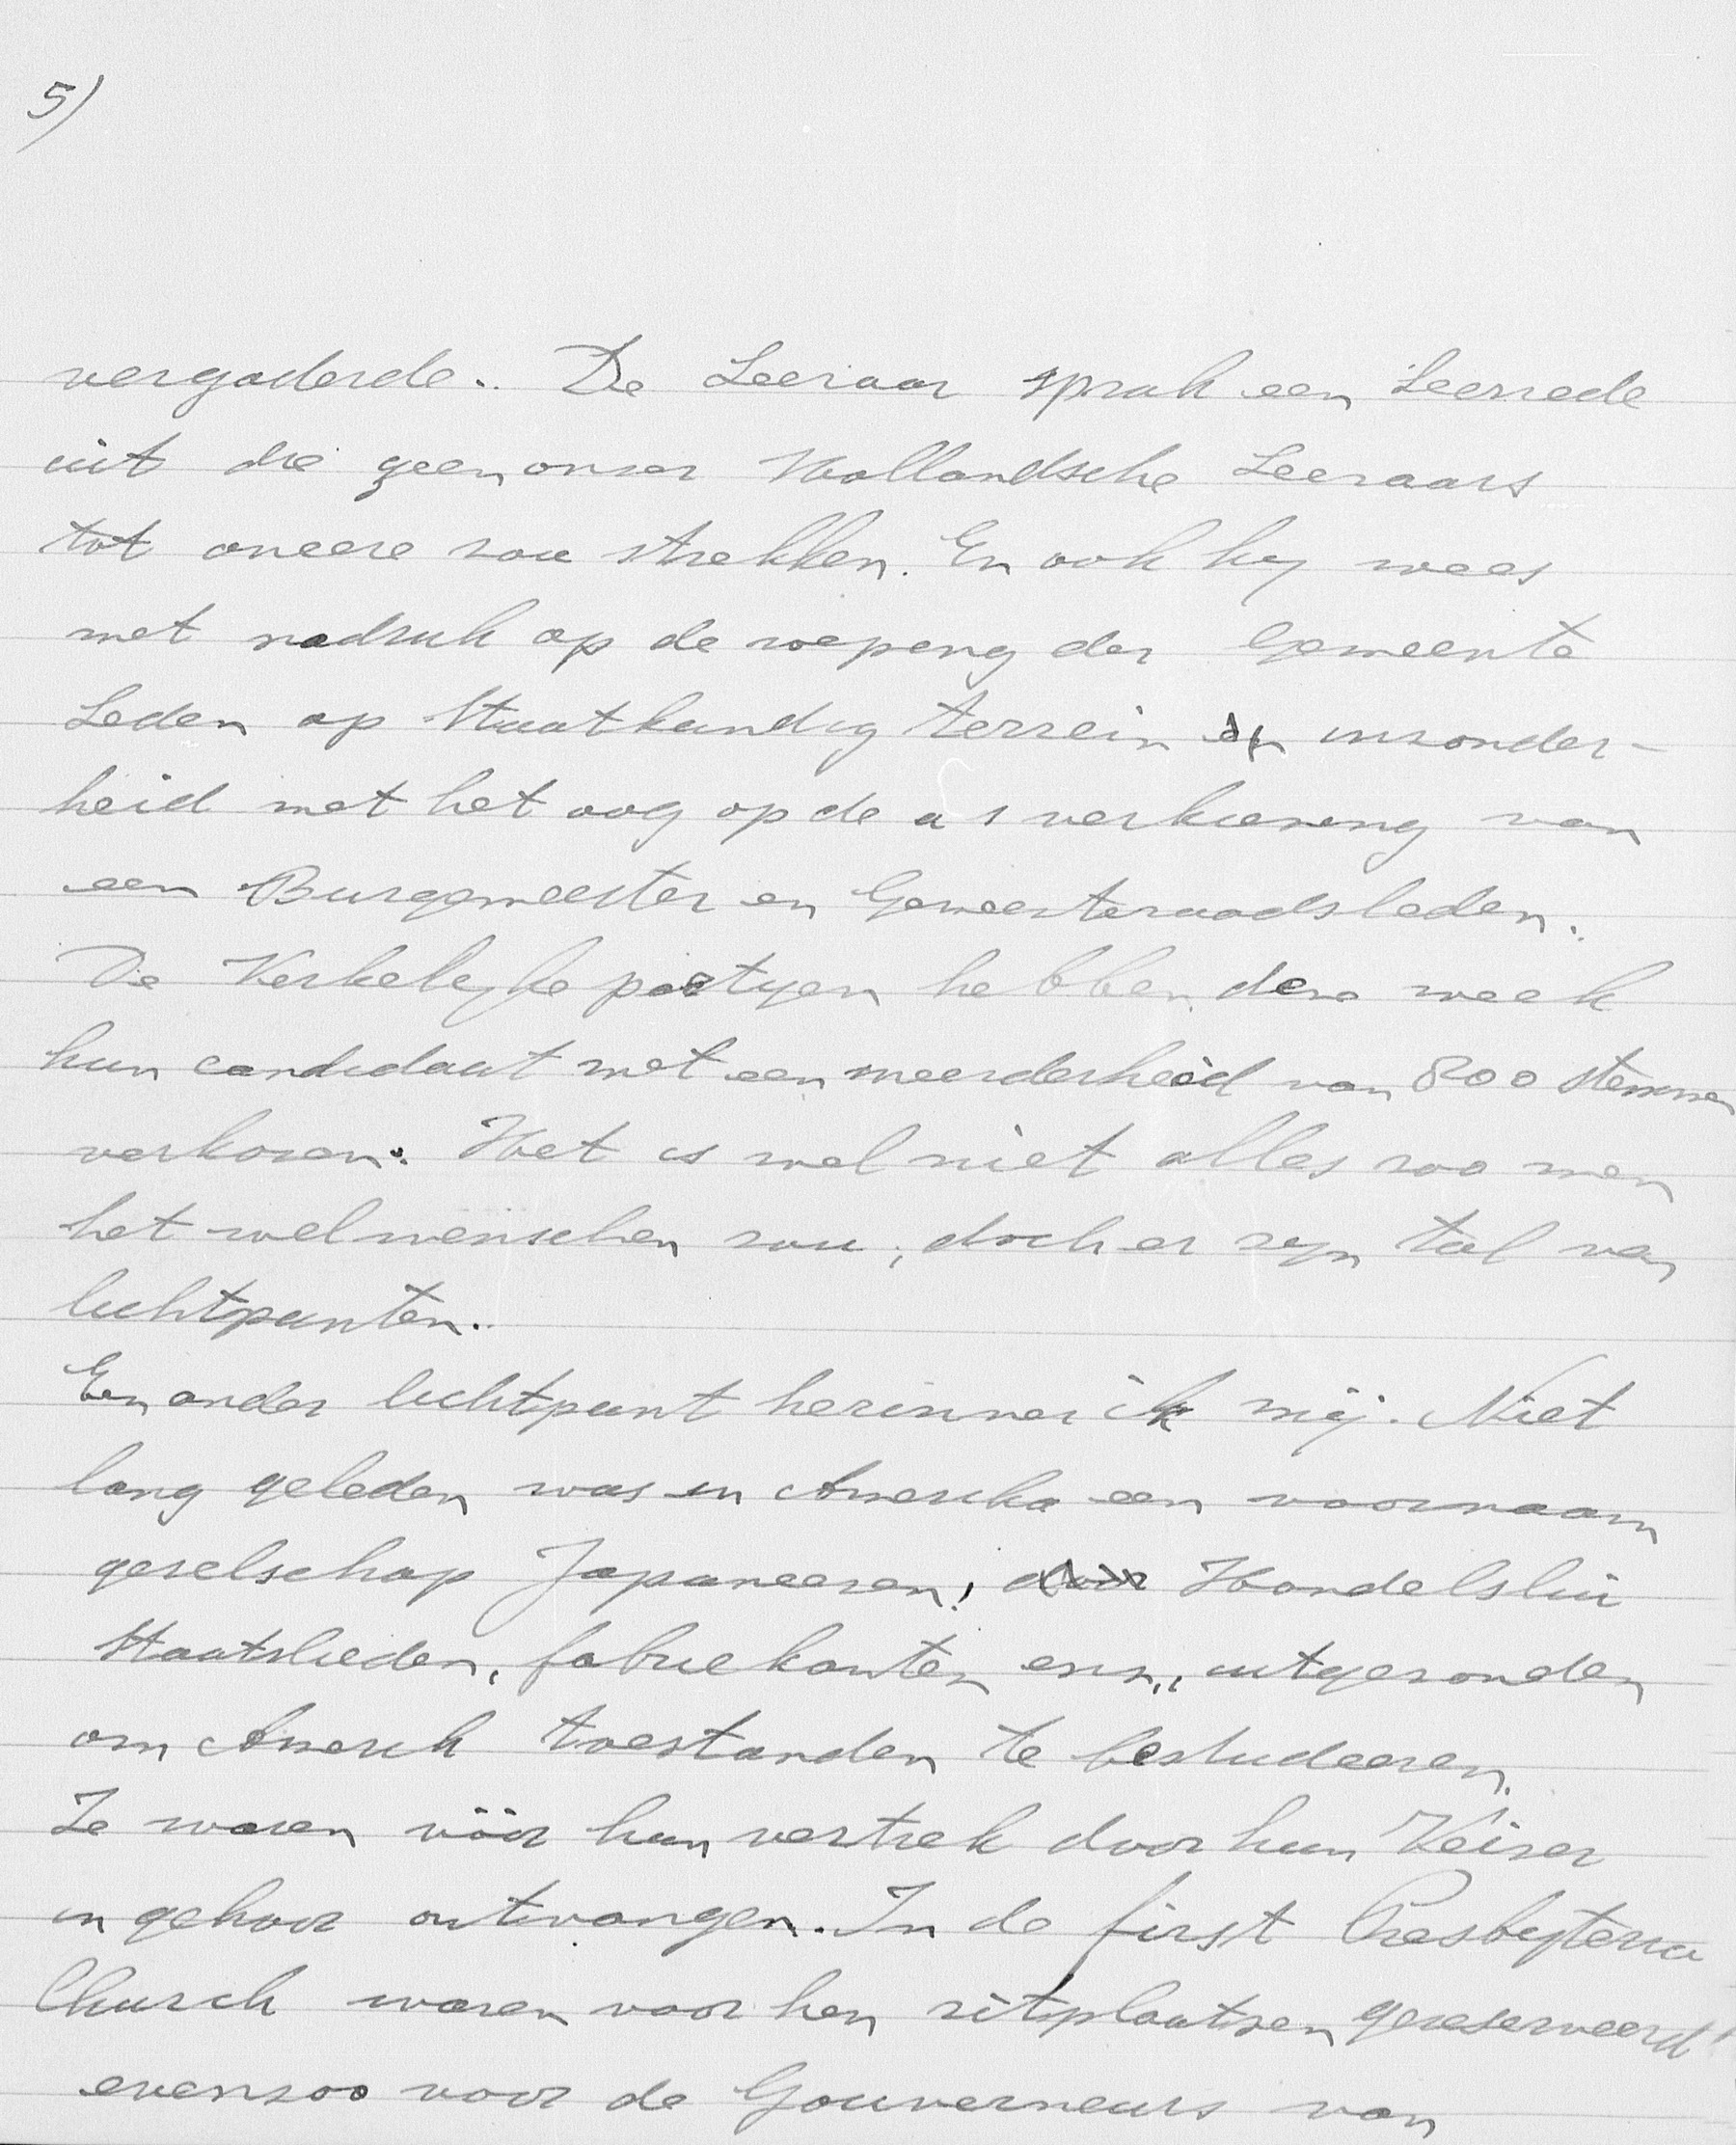 5)
vergaderde. De Leeraar sprak een Leerrede
uit die geen onzer Hollandsche Leeraars
tot oneere zou strekken. En ook hy wees
met nadruk op de roeping der Gemeente
Leden op Staatkundig terrein en inzonder-
heid met het oog op de a s verkiezing van
een Burgemeester en Gemeenteraadsleden.
De Kerkelyke partyen hebben deze week
hun candidaat met een meerderheid van 800 stemmen
verkozen. Het is wel niet alles zoo men
het wel wenschen zou, doch er zyn tal van
lichtpunten.
Een ander lichtpunt herinner ik mij. Niet
lang geleden was in Amerika een voornaam
gezelschap Japaneezen, Handelslui
Staatslieden, fabriekanten enz., uitgezonden
om Amerik toestanden te bestudeeren.
Ze waren vóór hun vertrek door hun Keizer
in gehoor ontvangen. In de first Presbyteria
Church waren voor hen zitplaatsen gereserveerd
evenzoo voor de Gouverneurs van